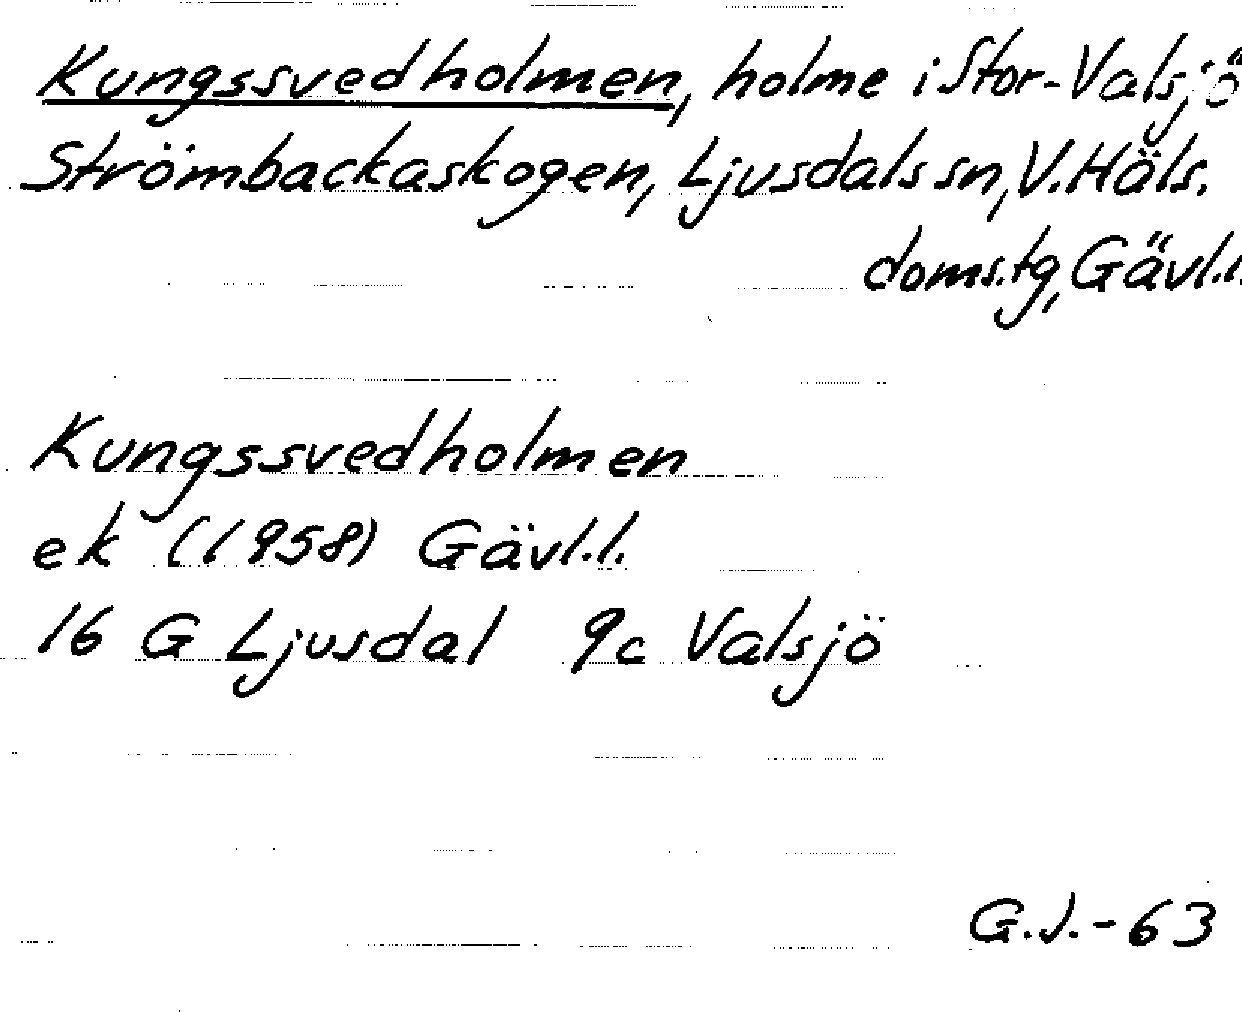 Kungssvedholmen, holme i Stor-Valsjö
Strömbackaskogen, Ljusdals sn, V. Häls.
doms.tg, Gävl.l.
Kungssvedholmen
ek (1958) Gävl.l.
16 G Ljusdal 9c Valsjö
G.J.-63